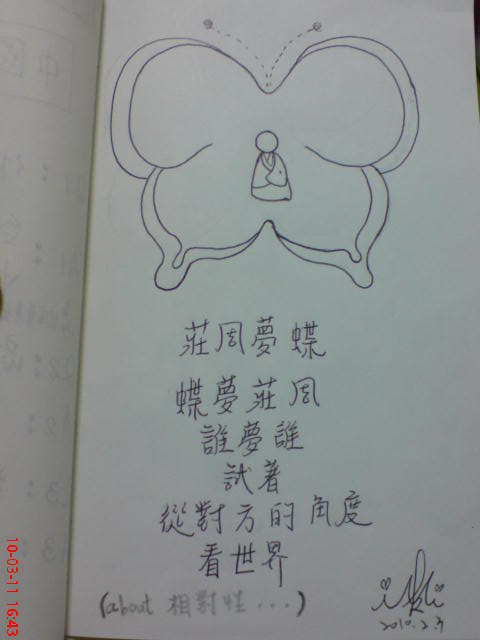 莊周夢蝶
蝶夢莊周
誰夢誰
試著
從對方的角度
看世界
(about 相對性...)
10-03-11 16:43